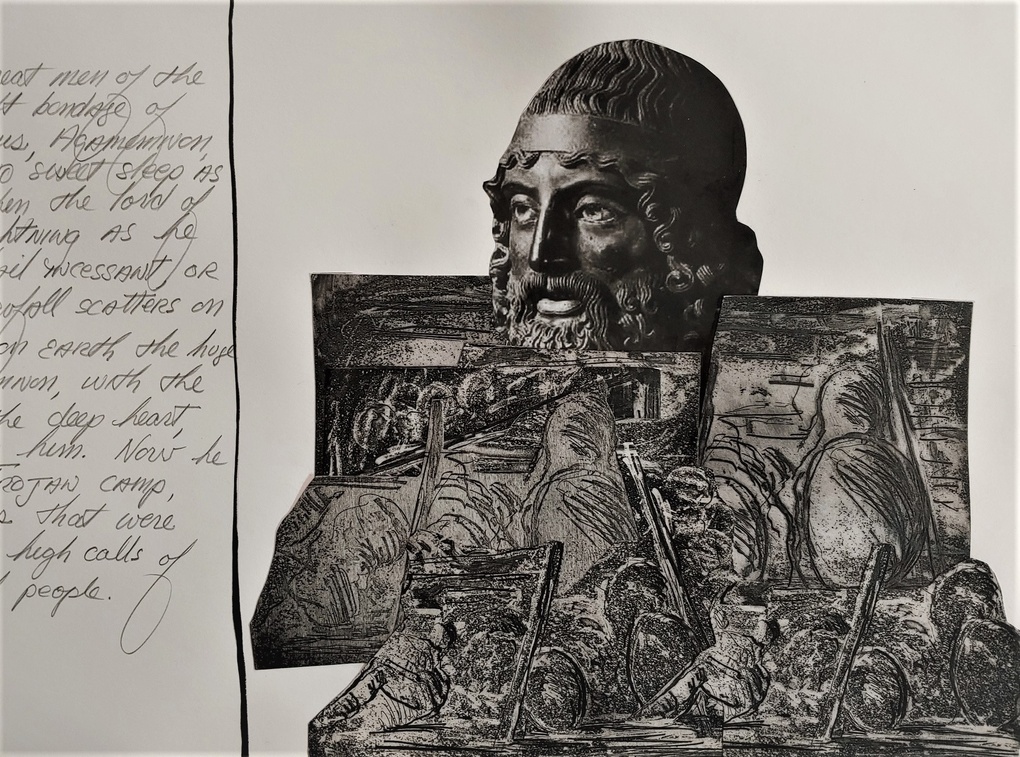 eat men of the
t bondage of
us, Agamemnon,
o sweet sleep as
en the lord of
htning as he
ail incessant or
owfall scatters on
on earth the huge
mnon, with the
he deep heart,
him. Now he
rojan camp,
s that were
high calls of
people.